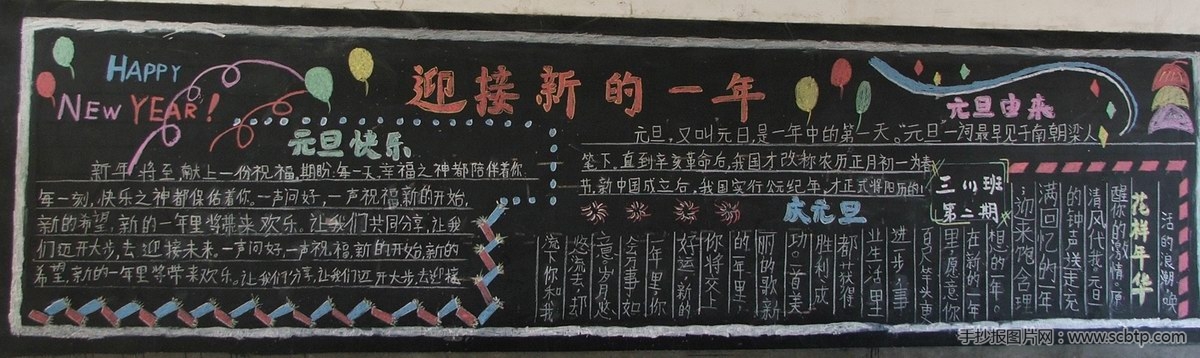 HAPPY
NEW YEAR!
迎接新的一年
元旦快乐
新年将至,献上一份祝福,期盼:每一天,幸福之神都陪伴着你
每一刻,快乐之神都保佑着你,一声问好,一声祝福,新的开始,
新的希望,新的一年里将带来欢乐。让我们共同分享,让我
们迈开大步,去迎接未来。一声问好,一声祝福,新的开始,新的
希望,新的一年里将带来欢乐。让我们分享,让我们迈开大步,去迎接
元旦由来
元旦,又叫元日,是一年中的第一天。"元旦一词最早见于南朝梁人
笔下,直到辛亥革命后,我国才改称农历正月初一为春
节,新中国成立后,我国实行公元纪年,才正式将阳历的1
三(1)班
第二期
庆元旦
花样年华
活的浪潮,唤
醒你的激情。原
清风代我。元旦
的钟声送走充
满回忆的一年
迎来饱含合理
想的一年。
在新的一年
里,愿意你
百尺竿头更
进步,事
业生活里
都获得
胜利成
功。首美
丽的歌新
的一年里,
你将交上
好运,新的
一年里,你
会万事如
意,岁月悠
悠流去,却
流下你和我
手抄报图片网:www.scbtp.com